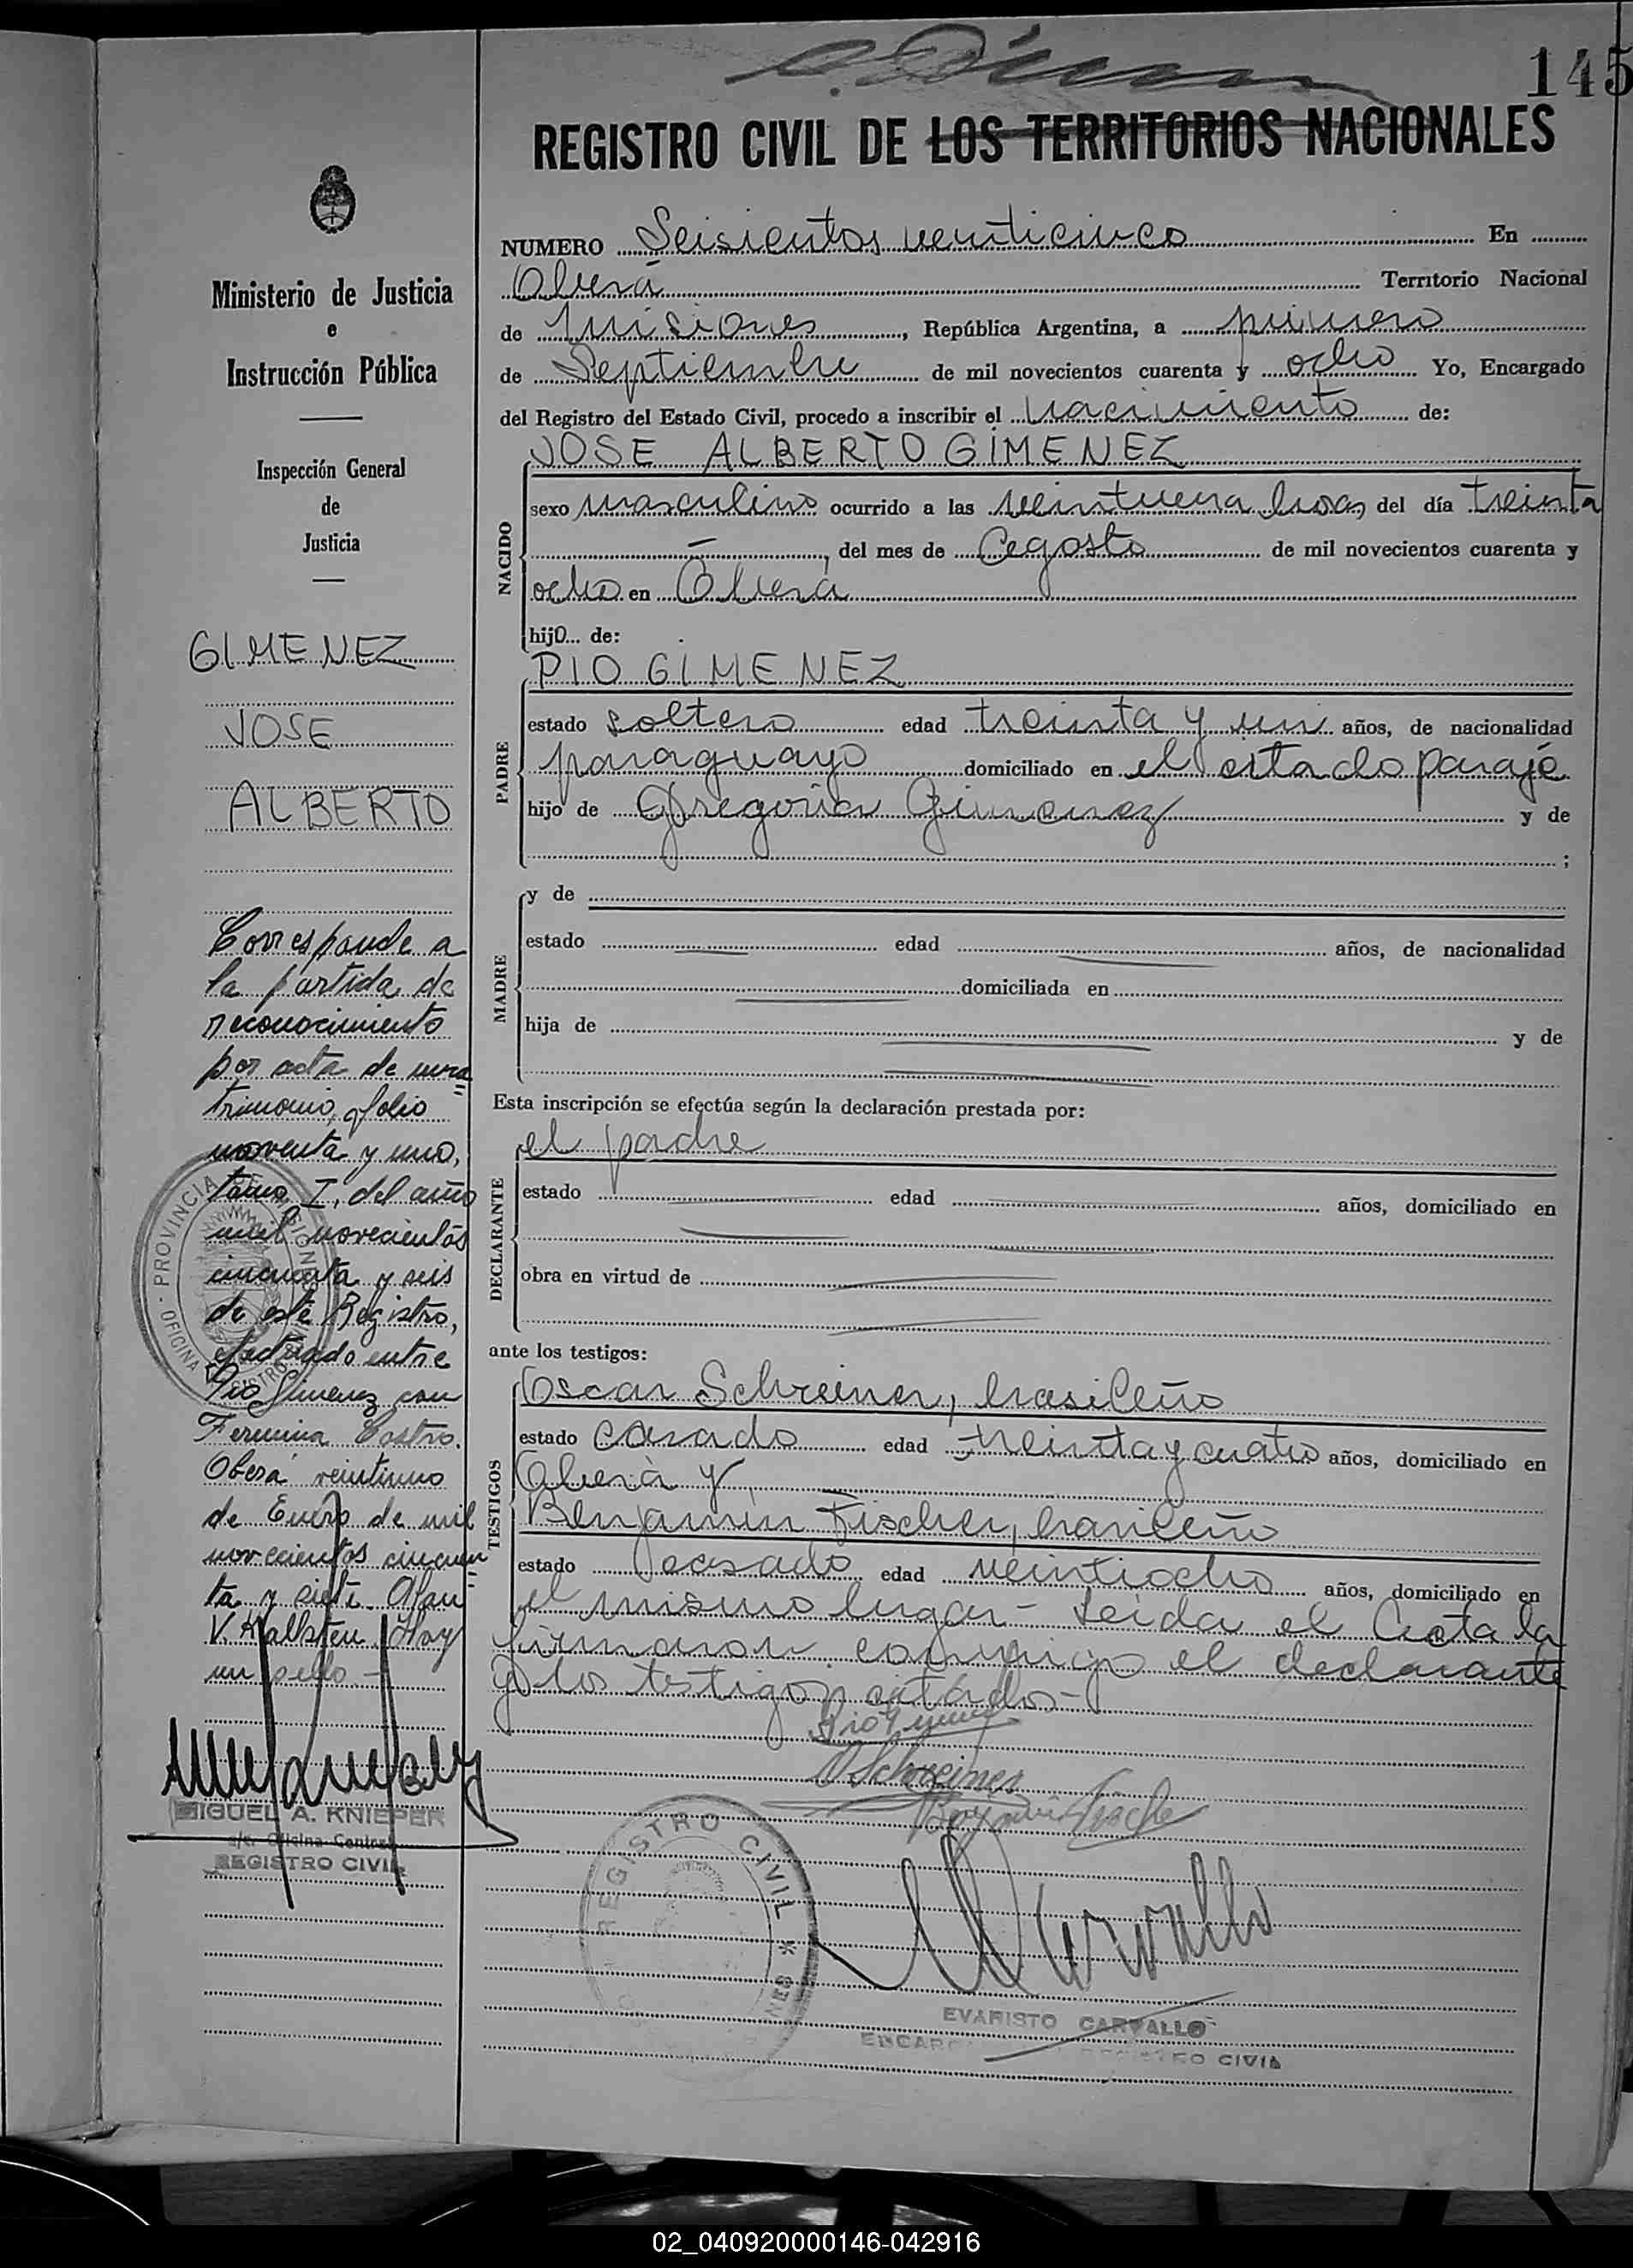 145
REGISTRO CIVIL DE LOS TERRITORIOS NACIONALES
Ministerio de Justicia
e
Instrucción Pública
Inspección General
de
Justicia
GIMENEZ
JOSE
ALBERTO
Corresponde a
la partida de
reconocimiento
por acta de ma
trimonio, folio
noventa y uno,
tomo I, del año
mil novecientos
cincuenta y seis
de este Registro,
efectuado entre
Pio Gimenez con
Fermina Castro.
Oberá veintiuno
de Enero de mil
novecientos cincuen
ta y siete. Olau
V. Hallsten. Hay
un sello.-
MIGUEL A. KNIEPER
a/c. Oficina Central
REGISTRO CIVIL
NUMERO Seisientos veinticinco En
Oberá Territorio Nacional
de Misiones, República Argentina, a primero
de Septiembre de mil novecientos cuarenta y ocho Yo, Encargado
del Registro del Estado Civil, procedo a inscribir el nacimiento de:
NACIDO
JOSE ALBERTO GIMENEZ
sexo masculino ocurrido a las veintiuna horas del día treinta
-, del mes de Agosto de mil novecientos cuarenta y
ocho en Oberá
hijO de:
PADRE
PIO GIMENEZ
estado soltero edad treinta y un años, de nacionalidad
paraguayo domiciliado en el citado paraje
hijo de Gregoria Gimenez y de
;
MADRE
y de
estado edad años, de nacionalidad
domiciliada en
hija de y de
Esta inscripción se efectúa según la declaración prestada por:
DECLARANTE
el padre
estado edad años, domiciliado en
obra en virtud de
ante los testigos:
TESTIGOS
Oscar Schreiner, brasileño
estado casado edad treinta y cuatro años, domiciliado en
Oberá y
Benjamin Fischer, brasileño
estado casado edad veintiocho años, domiciliado en
el mismo lugar- Leida el Acta la
firmaron conmigo el declarante
y los testigos citados-
O Schreiner
REGISTRO CIVIL
EVARISTO CARVALLO
REGISTRO CIVIL
02_040920000146-042916